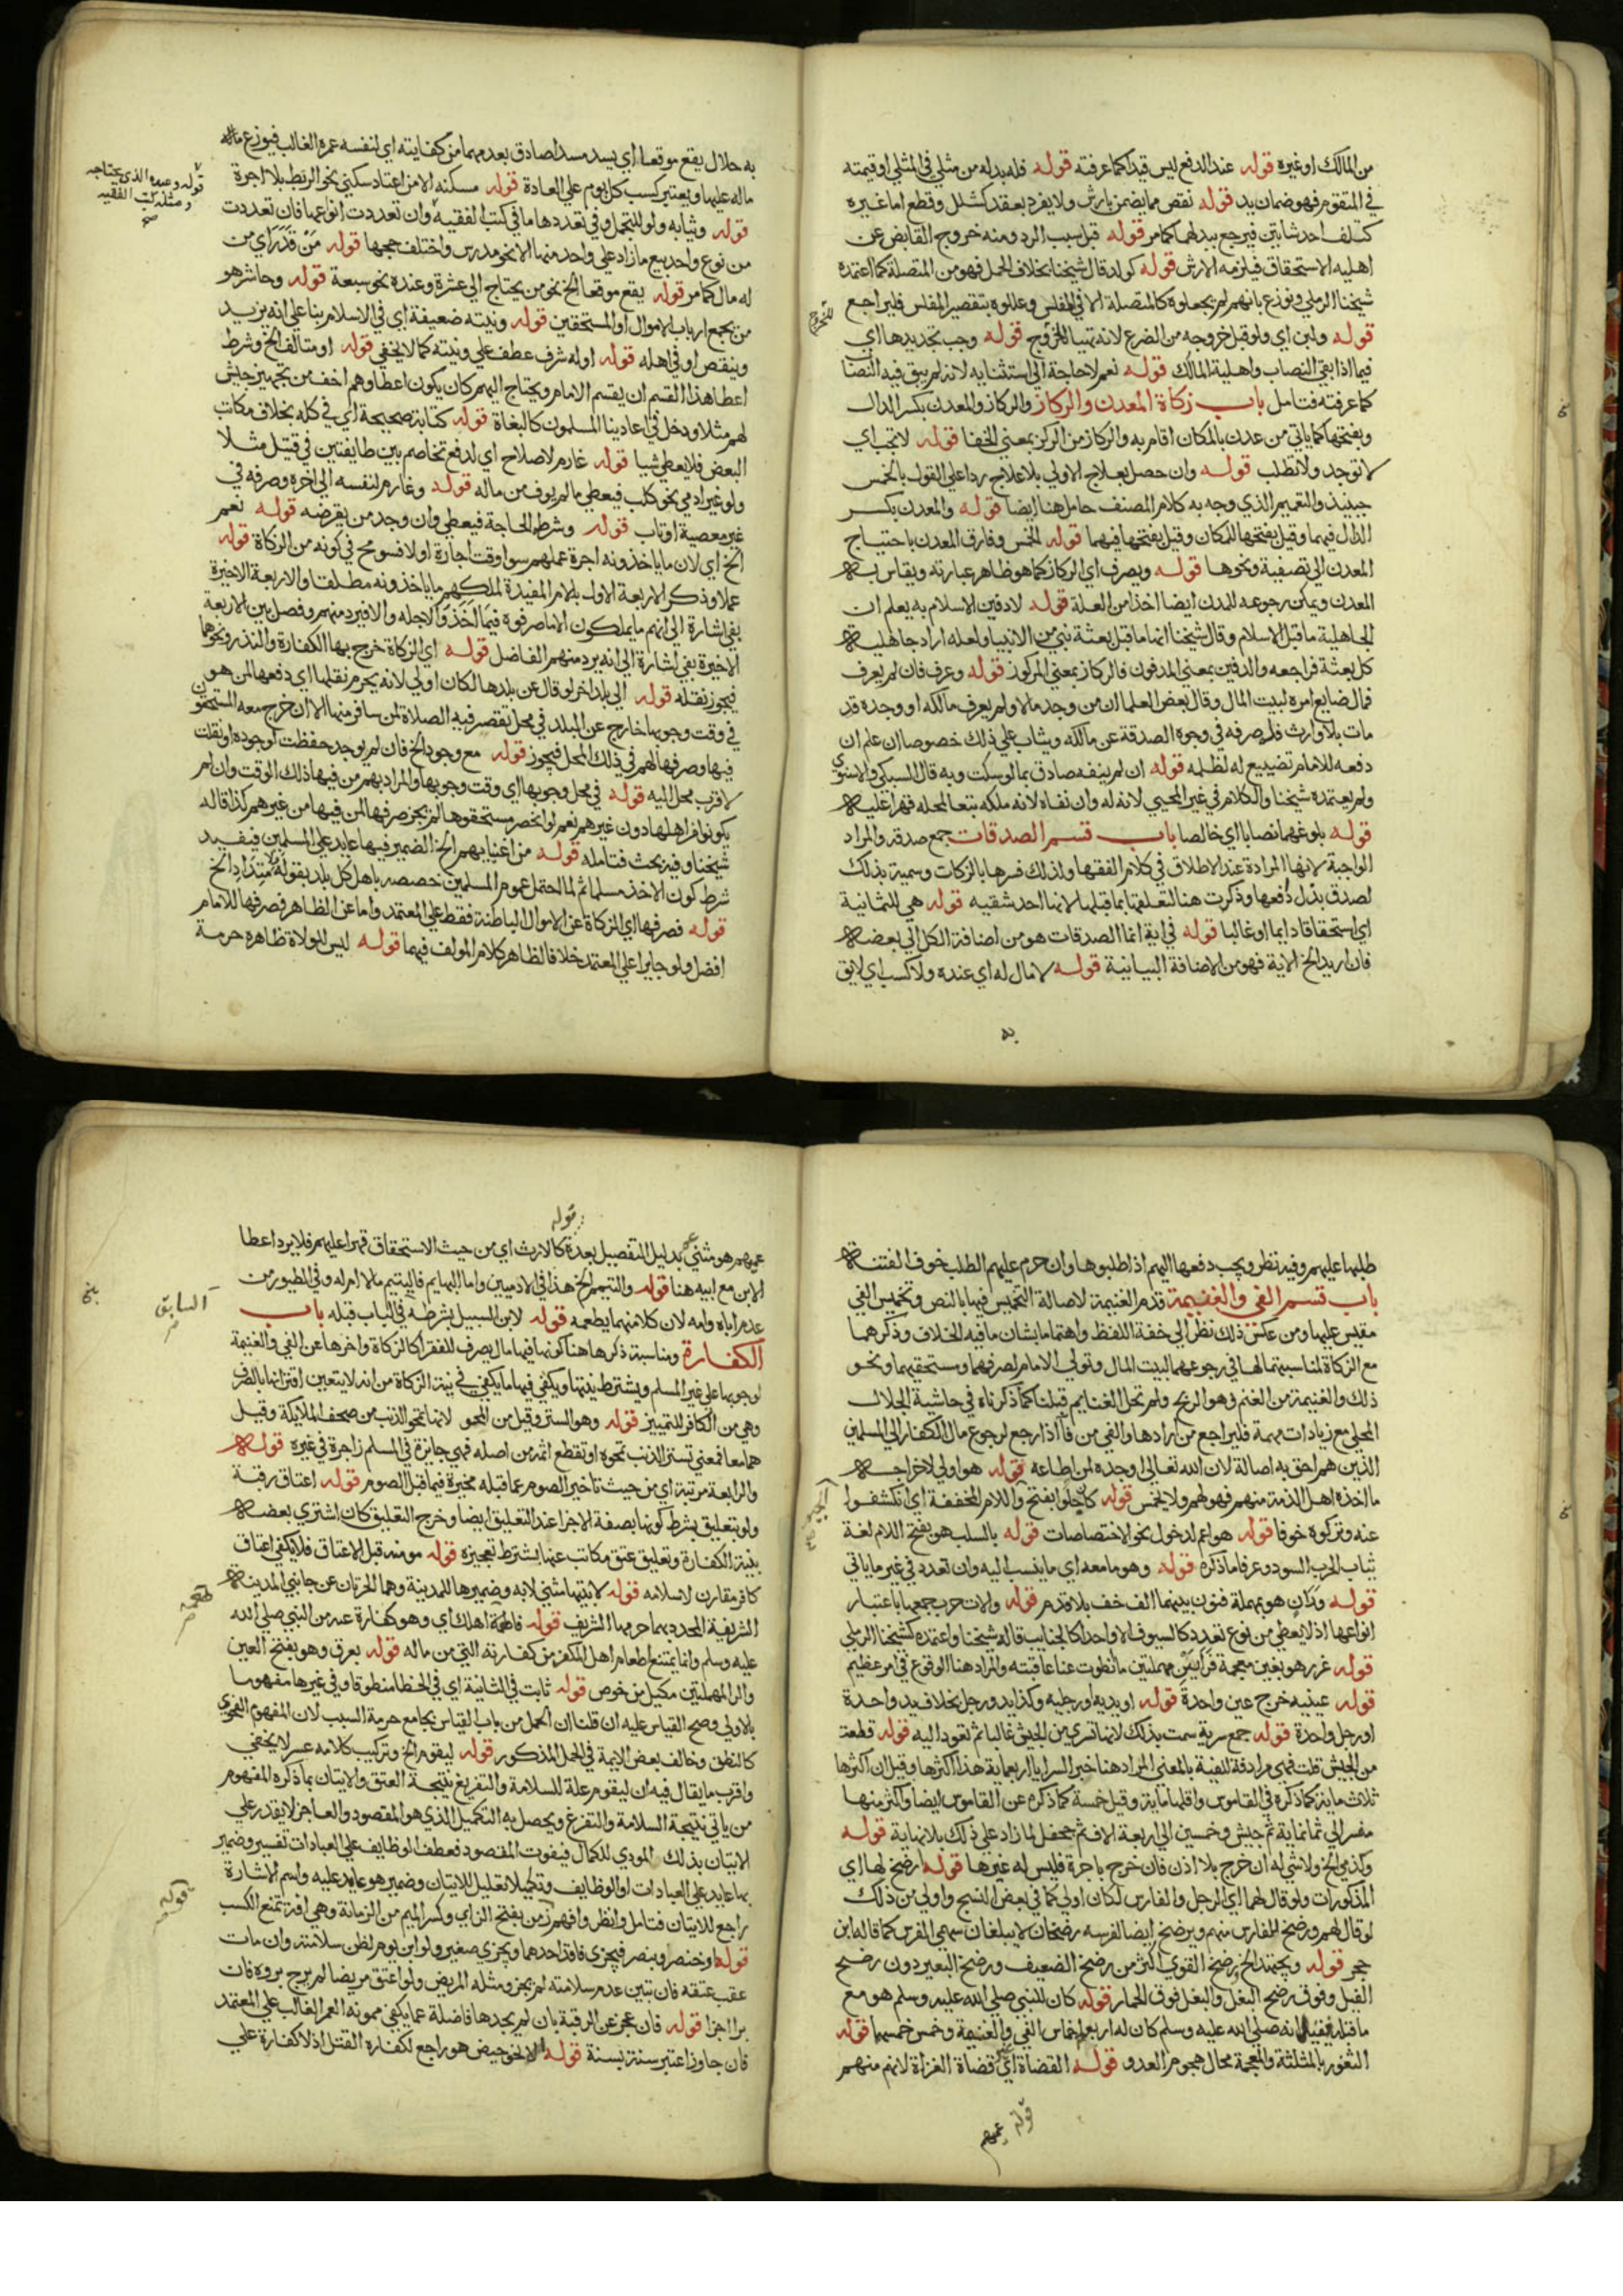 من المالك او غيره قوله عند الدفع ليس قيدا كما عرفته قوله فله بدله من مثلي في المثلي او قيمته
في المتقوم فهو ضمان يد قوله نقص مما يضمن بارش ولا يفرد بعقد كشلل وقطع اما غيره
كتلف احد شاتين فيرجع ببدلهما كما مر قوله قبل سبب الرد ومنه خروج القابض عن
اهلية الاستحقاق فيلزمه الارش قوله كولد قال شيخنا بخلاف الحمل فهو من المتصلة كما اعتمده
شيخنا الرملي ونوزع بانهم لم يجعلوه كالمتصلة الا في المفلس وعللوه بتقصير المفلس فليراجع
قوله ولبن اي ولو قبل خروجه من الضرع لانه تهيا للخروج قوله وجب تجديدها اي
فيما اذا بقي النصاب واهلية المالك قوله نعم لا حاجة الي استثنايه لانه لم يبق فيه النصاب
كما عرفته فتامل باب زكاة المعدن والركاز والركاز والمعدن بكسر الدال
وبفتحها كما ياتي من عدن بالمكان اقام به والركاز من الركز بمعني الخفا قوله لا تجب اي
لا توجد ولا تطلب قوله وان حصل بعلاج الاولي بلا علاج ردا علي القول بالخمس
حينيذ والتعميم الذي وجه به كلام المصنف حامل هنا ايضا قوله والمعدن بكسر
الدال فيهما وقيل بفتحها للمكان وقيل بفتحها فيهما قوله الخمس وفارق المعدن باحتياج
المعدن الي تصفية ونحوها قوله ويصرف اي الركاز كما هو ظاهر عبارته ويقاس به
المعدن ويمكن رجوعه للمعدن ايضا اخذا من العلة قوله لا دفين الاسلام به يعلم ان
الجاهلية ما قبل الاسلام وقال شيخنا انما ما قبل بعثة نبي من الانبيا ولعله اراد جاهلية
كل بعثة فراجعه والدفين بمعني المدفون فالركاز بمعني المركوز قوله وعرف فان لم يعرف
فمال ضايع امره لبيت المال وقال بعض العلما ان من وجد مالا ولم يعرف مالكه او وجده قد
مات بلا وارث فله صرفه في وجوه الصدقة عن مالكه ويثاب علي ذلك خصوصا ان علم ان
دفعه للامام تضييع له لظلمه قوله ان لم ينفه صادق بما لو سكت وبه قال السبكي والاسنوي
ولم يعتمده شيخنا والكلام في غير المحيي لانه له وان نفاه لانه ملكه تبعا لمحله قهرا عليه
قوله بلوغهما نصابا اي خالصا باب قسم الصدقات جمع صدقة والمراد
الواجبة لانها المرادة عند الاطلاق في كلام الفقها ولذلك فسرها بالزكات وسميت بذلك
لصدق بذل دفعها وذكرت هنا لتعلقها بما قبلها لانها احد شقيه قوله هي للثمانية
اي استحقاقا دايما او غالبا قوله في اية انما الصدقات هو من اضافة الكل الي بعضه
فان اريد الخ الاية فهو من الاضافة البيانية قوله لا مال له اي عنده ولا كسب اي لايق
به
للخروج
به حلال يقع موقعا اي يسد مسدا صادق بعدمهما من كفايته اي لنفسه عمره الغالب فيوزع ماله
ماله عليها ويعتبر كسب كل يوم علي العادة قوله مسكنه الا من اعتاد سكني نحو الربط بلا اجرة
قوله وثيابه ولو للتجمل وفي تعددها ما في كتب الفقيه وان تعددت انواعها فان تعددت
من نوع واحد بيع ما زاد علي واحد منها الا نحو مدرس واختلف حجمها قوله من قدر اي من
له مال كما مر قوله يقع موقعا الخ نحو من يحتاج الي عشرة وعنده نحو سبعة قوله وحاشر هو
من يجمع ارباب الاموال او المستحقين قوله ونيته ضعيفة اي في الاسلام بنا علي انه يزيد
وينقص او في اهله قوله او له شرف عطف علي ونيته كما لا يخفي قوله او متالف الخ وشرط
اعطا هذا القسم ان يقسم الامام ويحتاج اليهم كان يكون اعطاوهم اخف من تجهيز جيش
لهم مثلا ودخل في اعادينا المسلمون كالبغاة قوله كتابة صحيحة اي في كله بخلاف مكاتب
البعض فلا يعطي شيا قوله غارم لاصلاح اي لدفع تخاصم بين طايفتين في قتيل مثلا
ولو غير ادمي نحو كلب فيعطي ما لم يوف من ماله قوله وغارم لنفسه الي اخره وصرفه في
غير معصية او تاب قوله وشرطه الحاجة فيعطي وان وجد من يقرضه قوله نعم
الخ اي لان ما ياخذونه اجرة عملهم سوا وقت اجارة او لا فسومح في كونه من الزكاة قوله
عملا وذكر الاربعة الاول بلام المفيدة لملكهم ما ياخذونه مطلقا والاربعة الاخيرة
بفي اشارة الي انهم ما يملكون الا ما صرفوه فيما اخذوا لاجله والا فيرد منهم وفصل بين الاربعة
الاخيرة بفي اشارة الي انه يرد منهم الفاضل قوله اي الزكاة خرج بها الكفارة والنذر ونحوهما
فيجوز نقله قوله الي بلد اخر لو قال عن بلدها لكان اولي لانه يحرم نقلها اي دفعها لمن هو
في وقت وجوبها خارج عن البلد في محل تقصر فيه الصلاة لمن سافر منها الا ان خرج معه المستحقون
فيها وصرفها لهم في ذلك المحل فيجوز قوله مع وجود الخ فان لم يوجد حفظت لوجوده او نقلت
لاقرب محل اليه قوله في محل وجوبها اي وقت وجوبها والمراد بهم من فيها ذلك الوقت وان لم
يكونوا من اهلها دون غيرهم نعم لو انحصر مستحقوها لم يجز صرفها لمن فيها من غيرهم كذا قاله
شيخنا وفيه بحث فتامله قوله من اغنيايهم الخ الضمير فيها عايد علي المسلمين فيفيد
شرط كون الاخذ مسلما ثم لما احتمل عموم المسلمين خصصه باهل كل بلد بقوله فلا يتداد الخ
قوله فصرفها اي الزكاة عن الاموال الباطنة فقط علي المعتمد واما عن الظاهرة فصرفها للامام
افضل ولو جايرا علي المعتمد خلافا لظاهر كلام المولف فيهما قوله ليس لولاة ظاهره حرمة
قوله وعبده الذي يحتاجه
ومثله كتب الفقيه
صح
طلبها عليهم وفيه نظر ويجب دفعها اليهم اذا طلبوها وان حرم عليهم الطلب خوف الفتنة
باب قسم الفي والغنيمة قدم الغنيمة لاصالة التخميس فيها بالنص وتخميس الفي
مقيس عليها ومن عكس ذلك نظر الي خفة اللفظ واهتماما بشان ما فيه الخلاف وذكرهما
مع الزكاة لمناسبتهما لها في رجوعهما لبيت المال وتولي الامام لصرفهما ومستحقيهما ونحو
ذلك والغنيمة من الغنم وهو الربح ولم تحل الغنايم قبلنا كما ذكرناه في حاشية الجلال
المحلي مع زيادات مهمة فليراجع من رادها والفي من فا اذا رجع لرجوع مال الكفار الي المسلمين
الذين هم احق به اصالة لان الله تعالي اوجده لمن اطاعه قوله هو اولي لاخراجه
ما اخذه اهل الذمة منهم فهو لهم ولا يخمس قوله كان جلوا بفتح واللام المخففة اي انكشفوا
عنه وتركوه خوفا قوله هو اعم لدخول نحو الاختصاصات قوله بالسلب هو بفتح اللام لغة
ثياب الحرب السود وعرفا ما ذكره قوله وهو ما معه اي ما ينسب اليه وان تعدد في غير ما ياتي
قوله وران هو بمهملة فنون بينهما الف خف بلا قدم قوله والات حرب جمعها باعتبار
انواعها اذ لا يعطي من نوع تعدد كالسيوف الا واحدا كالجنايب قاله شيخنا واعتمده كشيخنا الرملي
قوله غرر هو بغين معجمة فرايين مهملتين ما انطوت عنا عاقبته والمراد هنا الوقوع في امر عظيم
قوله عينيه خرج عين واحدة قوله او يديه او رجليه وكذا يد ورجل بخلاف يد واحدة
او رجل واحدة قوله جمع سرية سميت بذلك لانها تسري من الجيش غالبا ثم تعود اليه قوله قطعة
من الجيش قلت فهي مرادفة للفية بالمعني المراد هنا خير السرايا اربعماية هذا اكثرها وقيل ان اكثرها
ثلاث ماية كما ذكره في القاموس واقلها ماية وقيل خمسة كما ذكره عن القاموس ايضا واكثر منها
منسر الي ثمانماية ثم جيش وخمسين الي اربعة الاف ثم جحفل لما زاد علي ذلك بلا نهاية قوله
وكذمي الخ ولا شي له ان خرج بلا اذن فان خرج باجرة فليس له غيرها قوله ارضخ لها اي
المذكورات ولو قال لهما اي الرجل والفارس لكان اولي كما في بعض النسخ واولي من ذلك
لو قال لهم ورضخ للفارس منهم ويرضخ ايضا لفرسه رضخان لا يبلغان سهمي الفرس كما قاله ابن
حجر قوله ويجتهد الخ يرضخ القوي اكثر من رضخ الضعيف ورضخ البعير دون رضخ
الفيل وفوق رضخ البغل والبغل فوق الحمار قوله كان للنبي صلي الله عليه وسلم هو مع
ما قبله يفيد انه صلي الله عليه وسلم كان له اربعة اخماس الفي والغنيمة وخمس خمسهما قوله
الثغور بالمثلثة والمعجمة محال هجوم العدو قوله القضاة اي غير قضاة الغزاة لانهم منهم
قوله عمهم
قوله
عمهم هو مثني بدليل التفصيل بعده كالارث اي من حيث الاستحقاق قهرا عليهم فلا يرد اعطا
الابن مع ابيه هنا قوله واليتيم الخ هذا في الادميين واما البهايم فاليتيم ما لا ام له وفي الطيور من
عدم اباه وامه لان كلا منهما يطعمه قوله لابن السبيل بشرطه في الباب قبله باب
الكفارة ومناسبة ذكرها هنا كونها فيها مال يصرف للفقرا كالزكاة واخرها عن الفي والغنيمة
لوجوبها علي غير المسلم ويشترط نيتها ويكفي فيها ما يكفي في نية الزكاة من انه لا يتعين اقترانها بالصرف
وهي من الكافر للتمييز قوله وهو الستر وقيل من المحو لانها تمحو الذنب من صحف الملايكة وقيل
هما معا فمعني تستر الذنب تمحوه او تقطع اثمه من اصله فهي جابرة في المسلم زاجرة في غيره قوله
والرابعة مرتبة اي من حيث تاخير الصوم عما قبله مخيرة فيما قبل الصوم قوله اعتاق رقبة
ولو بتعليق بشرط كونها بصفة الاجزا عند التعليق ايضا وخرج التعليق كان اشتري بعضه
بنية الكفارة وتعليق عتق مكاتب عنها بشرط تعجيزه قوله مومنة قبل الاعتاق فلا يكفي اعتاق
كافر مقارن لاسلامه قوله لابتيها مثني لابة وضميرها للمدينة وهما الحرتان عن جانبي المدينة
الشريفة المحدد بهما حرمها الشريف قوله فاطعمه اهلك اي وهو كفارة عنه من النبي صلي الله
عليه وسلم وانما يمتنع اطعام اهل المكفر من كفارته التي من ماله قوله بعرق وهو بفتح العين
والرا المهملتين مكيل من خوص قوله ثابت في الثانية اي في الخطا منطوقا وفي غيرها مفهوما
بالاولي وصح القياس عليه ان قلنا ان الحمل من باب القياس بجامع حرمة السبب لان المفهوم النحوي
كالنطق وخالف بعض الايمة في الحمل المذكور قوله ليقوم الخ وتركيب كلامه عسر لا يخفي
واقرب ما يقال فيه ان ليقوم علة للسلامة والتفريغ نتيجة العتق والاتيان بما ذكره المفهوم
من ياتي نتيجة السلامة والتفرغ ويحصل به التكميل الذي هو المقصود والعاجز لا يقدر علي
الاتيان بذلك المودي للكمال فيفوت المقصود فعطف الوظايف علي العبادات تفسير وضمير
بها عايد علي العبادات او الوظايف وتكميلا تعليل للاتيان وضمير هو عايد عليه واسم الاشارة
راجع للاتيان فتامل وانظر وافهم زمن بفتح الزاي وكسر الميم من الزمانة وهي افة تمنع الكسب
قوله او خنصر وبنصر فيجزي فاقد احدهما ويجزي صغير ولو ابن يوم لظن سلامته وان مات
عقب عتقه فان تبين عدم سلامته لم يجز ومثله المريض ولو اعتق مريضا لم يرج بروه فان
برا اجزا قوله فان عجز عن الرقبة بان لم يجدها فاضلة عما يكفي ممونه العمر الغالب علي المعتمد
فان جاوز اعتبر سنة بسنة قوله الا لنحو حيض هو راجع لكفارة القتل اذ لا كفارة علي
السابق
قوله